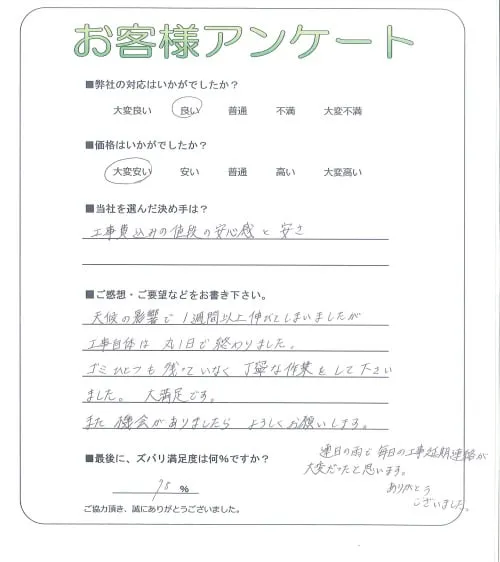 お客様アンケート
■弊社の対応はいかがでしたか？
大変良い 良い 普通 不満 大変不満
■価格はいかがでしたか？
大変安い 安い 普通 高い 大変高い
■当社を選んだ決め手は？
工事費込みの値段の安心感と安さ
■ご感想・ご要望などをお書き下さい。
天候の影響で1週間以上伸びてしまいましたが
工事自体は丸1日で終わりました。
ゴミひとつも残っていなく丁寧な作業をして下さい
ました。大満足です。
また機会がありましたらよろしくお願いします。
■最後に、ズバリ満足度は何％ですか？
％
ご協力頂き、誠にありがとうございました。
連日の雨で毎日の工事延期連絡が
大変だったと思います。
ありがとう
ございました。